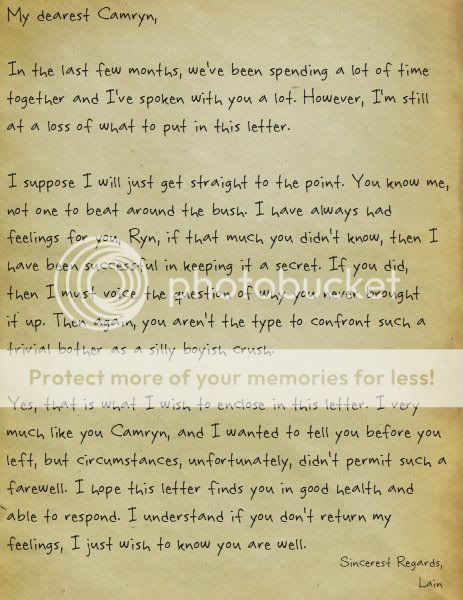 My dearest Camryn,
In the last few months, we've been spending a lot of time
together and I've spoken with you a lot. However, I'm still
at a loss of what to put in this letter.
I suppose I will just get straight to the point. You know me,
not one to beat around the bush. I have always had
feelings for you, Ryn, if that much you didn't know, then I
have been successful in keeping it a secret. If you did,
then I must voice the question of why you never brought
it up. Then again, you aren't the type to confront such a
trivial bother as a silly boyish crush.
photobucket
Protect more of your memories for less!
Yes, that is what I wish to enclose in this letter. I very
much like you Camryn, and I wanted to tell you before you
left, but circumstances, unfortunately, didn't permit such a
farewell. I hope this letter finds you in good health and
able to respond. I understand if you don't return my
feelings, I just wish to know you are well.
Sincerest Regards,
Lain